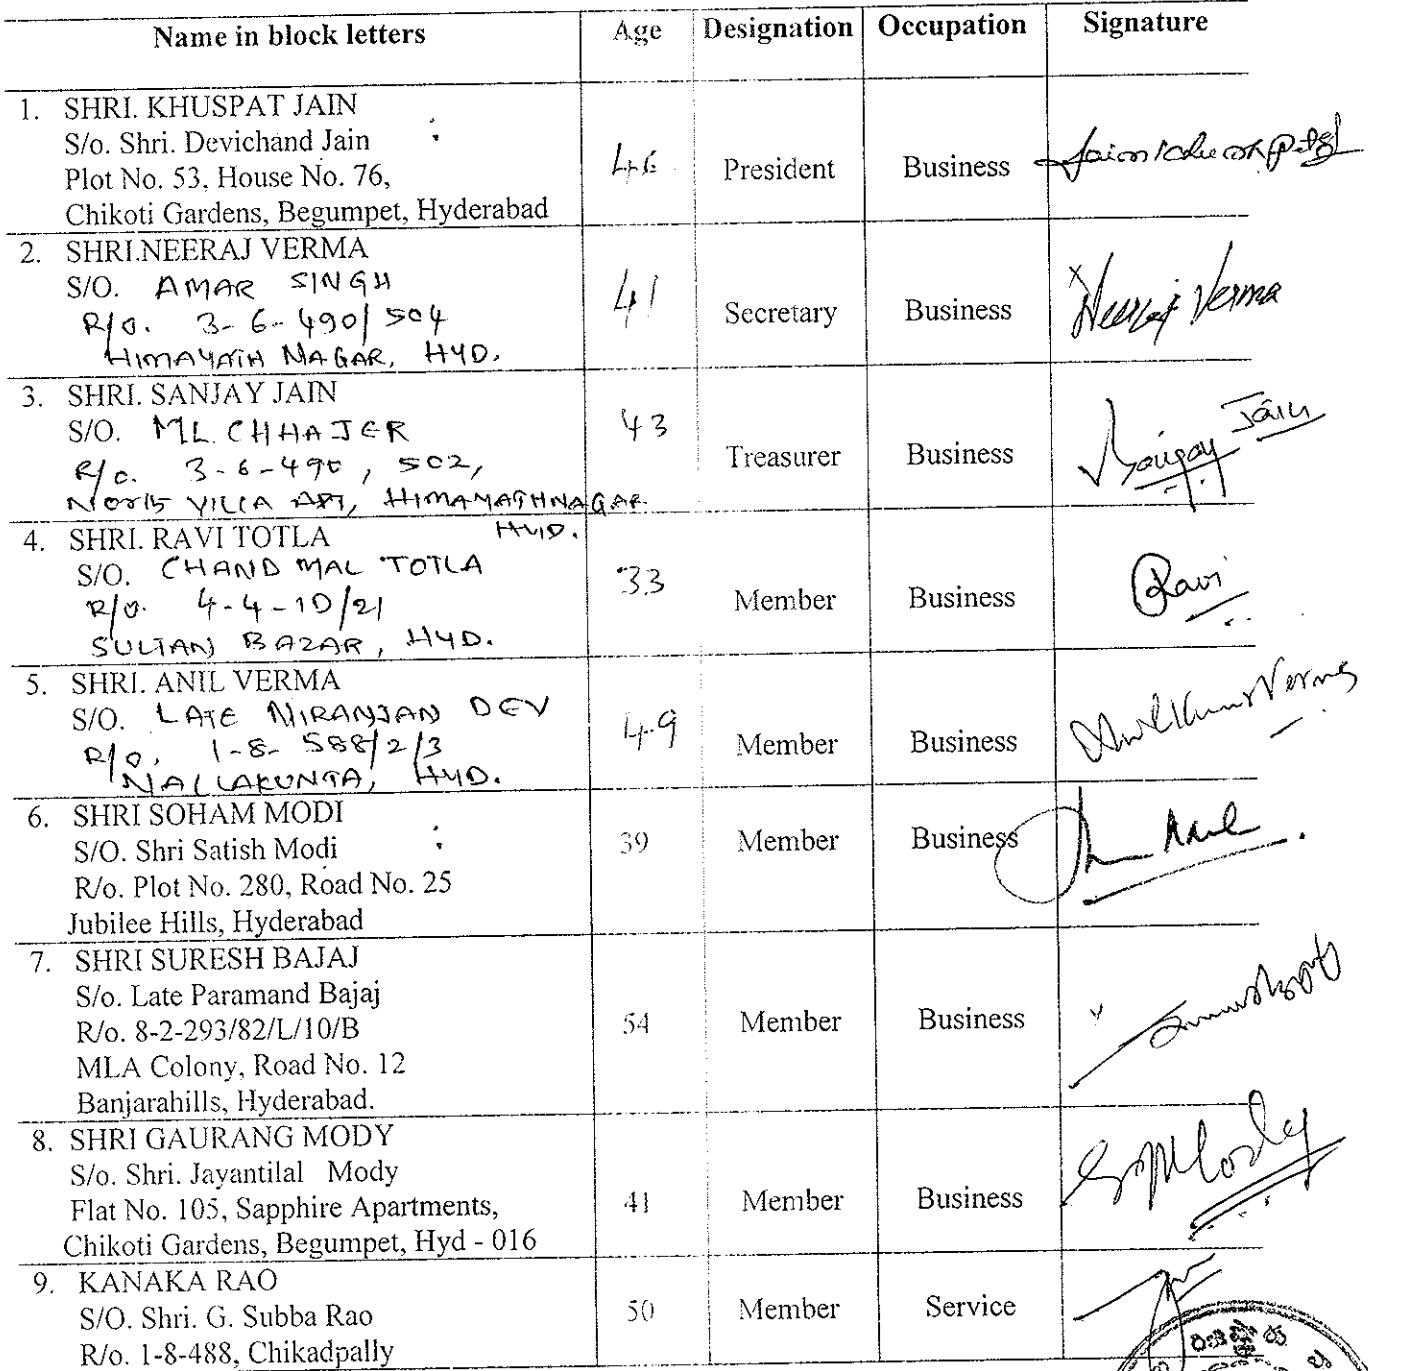 Name in block letters Age Designation Occupation Signature
1. SHRI. KHUSPAT JAIN
S/o. Shri. Devichand Jain
Plot No. 53, House No. 76,
Chikoti Gardens, Begumpet, Hyderabad
46 President Business
2. SHRI.NEERAJ VERMA
S/O. AMAR SINGH
R/o. 3-6-490/504
HIMAYATH NAGAR, HYD.
41 Secretary Business Neeraj Verma
3. SHRI. SANJAY JAIN
S/O. ML. CHHAJER
R/o. 3-6-490, 502,
VILLA APT, HIMAYATHNAGAR
HYD.
43 Treasurer Business Sanjay Jain
4. SHRI. RAVI TOTLA
S/O. CHAND MAL TOTLA
R/o. 4-4-10/21
SULTAN BAZAR, HYD.
33 Member Business Ravi
5. SHRI. ANIL VERMA
S/O. LATE NIRANJAN DEV
R/o. 1-8-588/2/3
NALLAKUNTA, HYD.
49 Member Business Anil Kumar Verma
6. SHRI SOHAM MODI
S/O. Shri Satish Modi
R/o. Plot No. 280, Road No. 25
Jubilee Hills, Hyderabad
39 Member Business
7. SHRI SURESH BAJAJ
S/o. Late Paramand Bajaj
R/o. 8-2-293/82/L/10/B
MLA Colony, Road No. 12
Banjarahills, Hyderabad.
54 Member Business
8. SHRI GAURANG MODY
S/o. Shri. Jayantilal Mody
Flat No. 105, Sapphire Apartments,
Chikoti Gardens, Begumpet, Hyd - 016
41 Member Business
9. KANAKA RAO
S/O. Shri. G. Subba Rao
R/o. 1-8-488, Chikadpally
50 Member Service